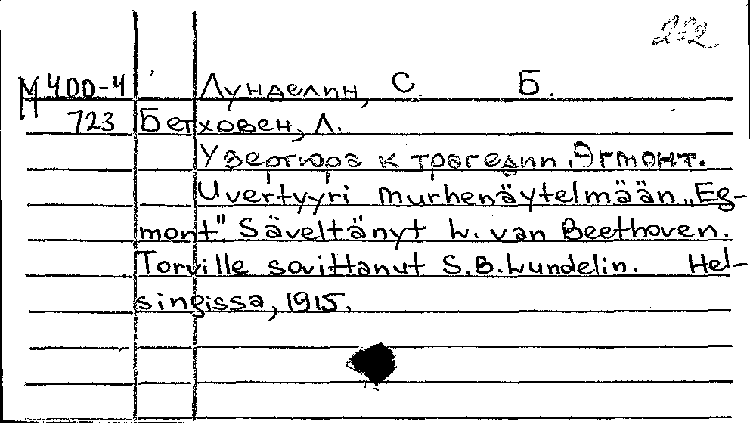 212
М 400-4 Лунделин, С. Б.
723 Бетховен, Л.
Увертюра к трагедии „Эгмонт".
Uvertyyri murhenäytelmään „Eg-
mont". Säveltänyt L. van Beethoven.
Torville sovittanut S.B. Lundelin. Hel-
singissa, 1915.